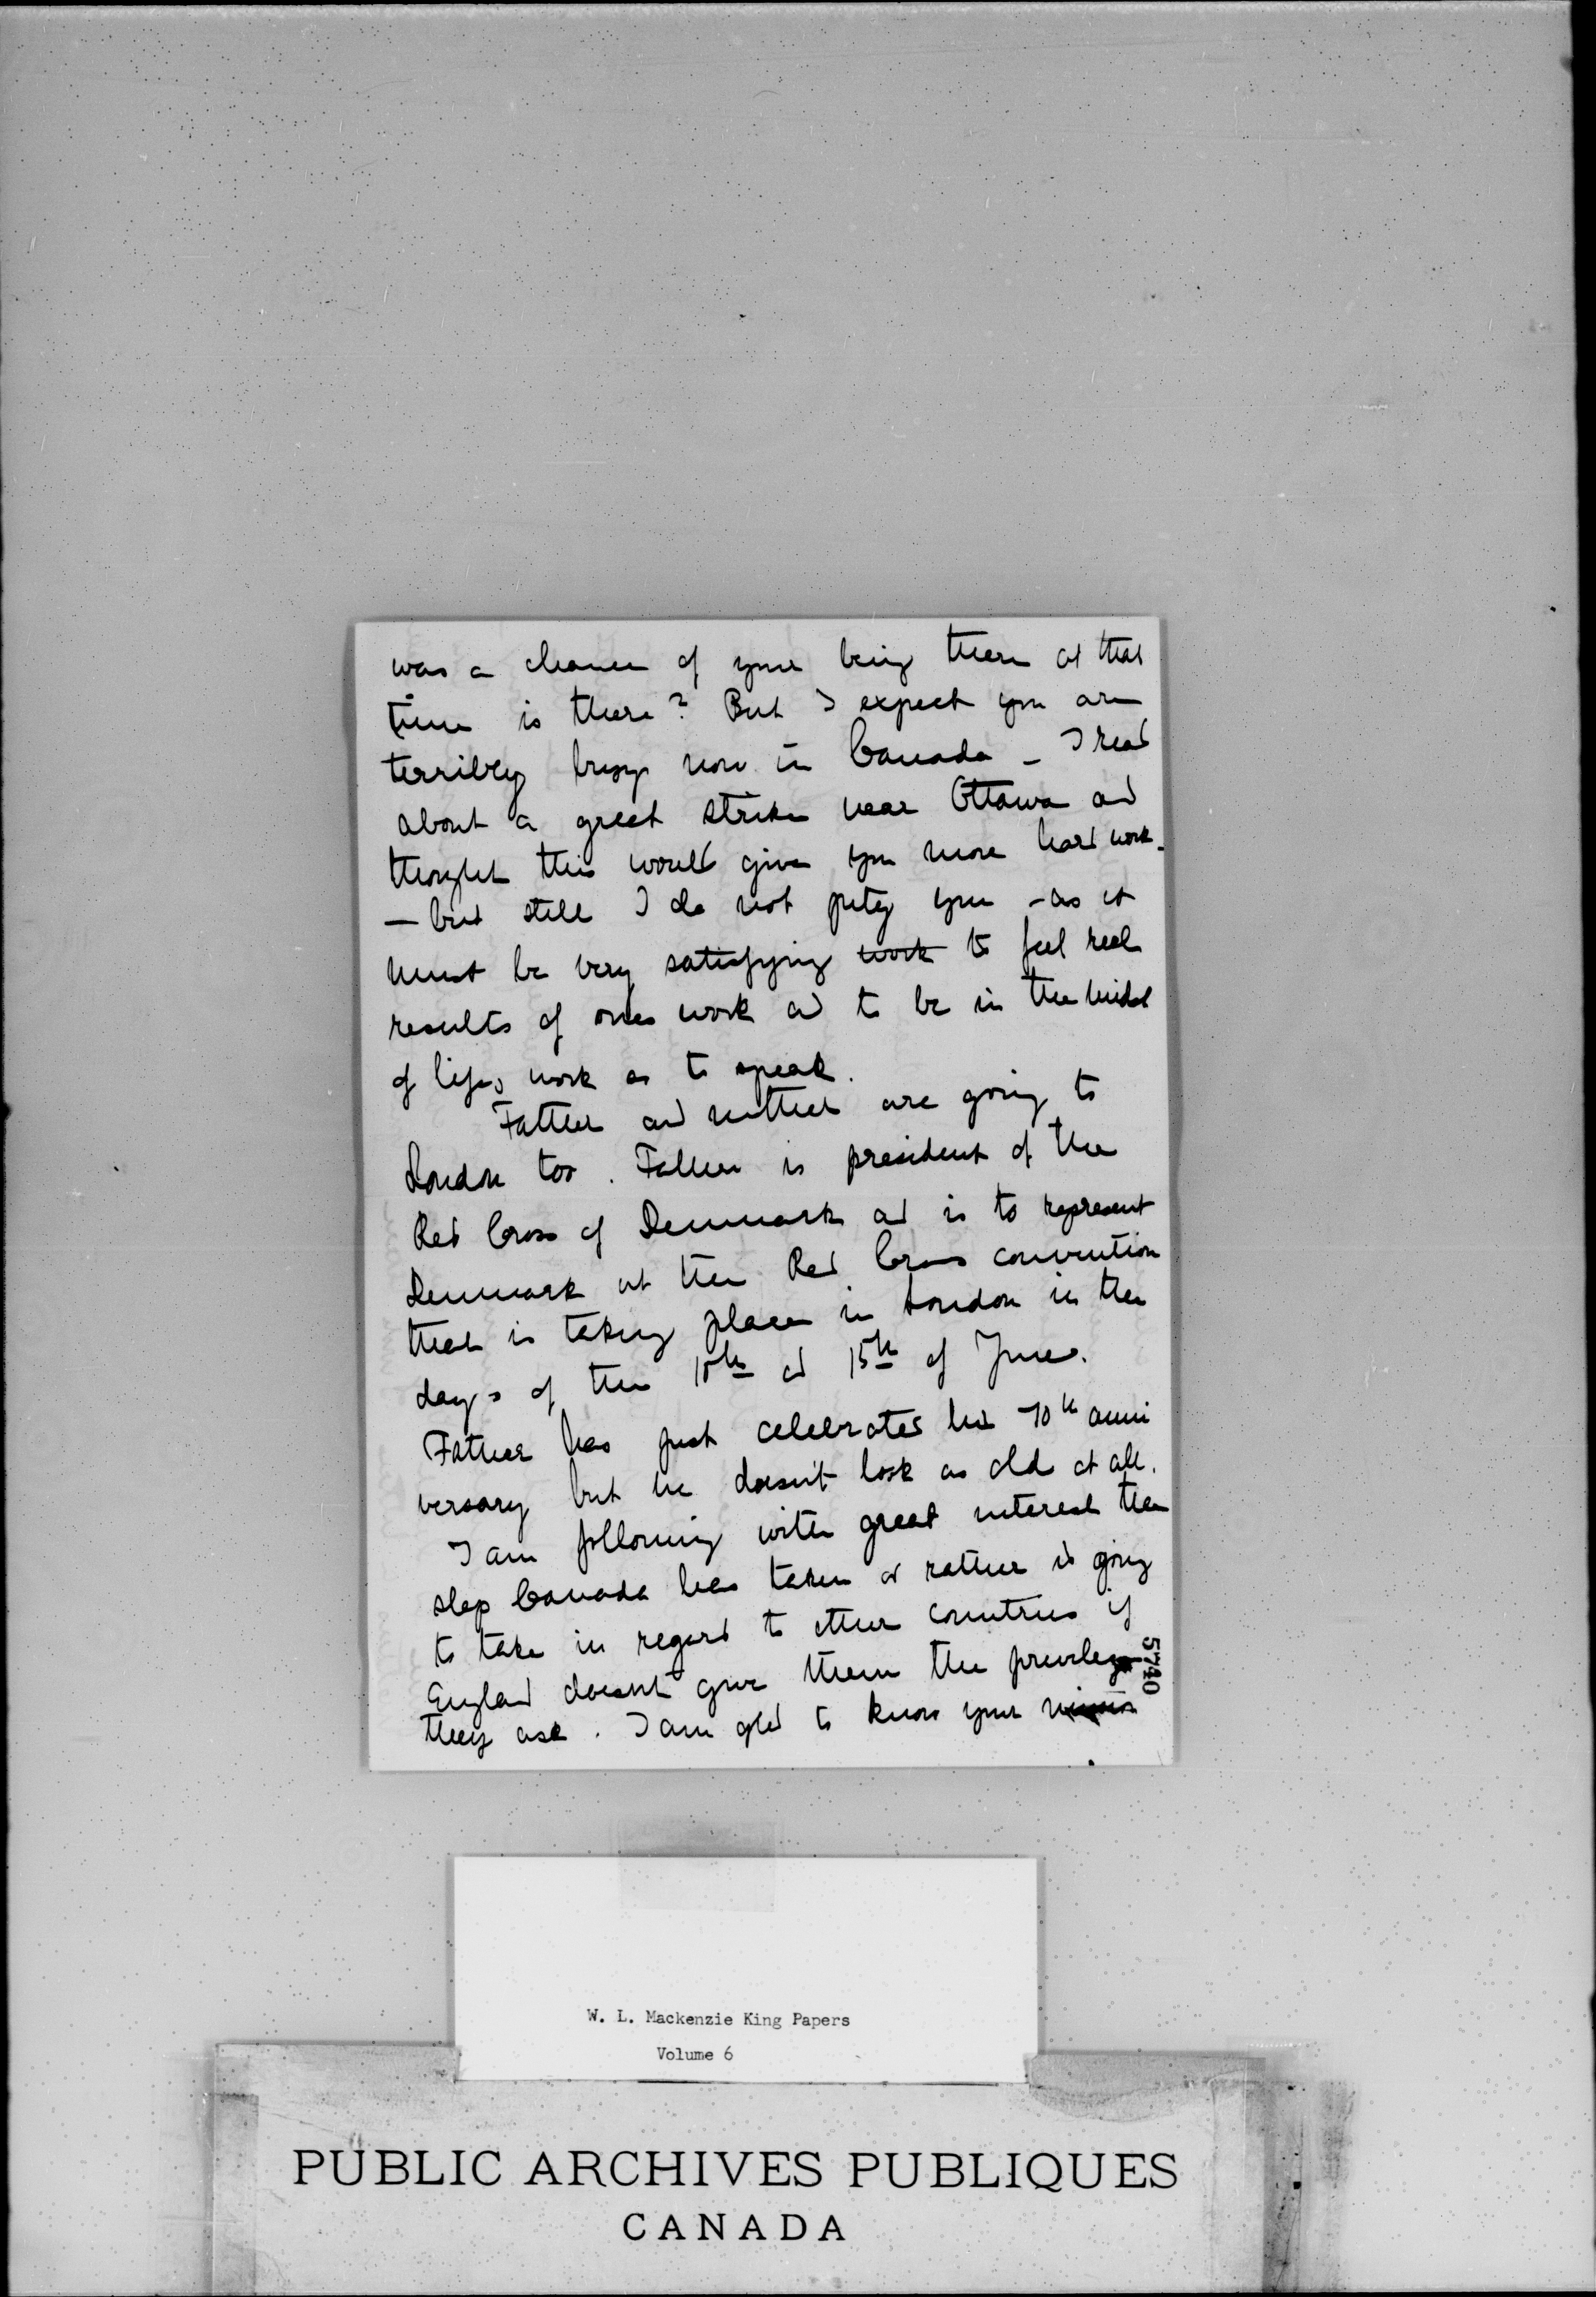 was a chance of your being there at that
time is there? But I expect you are
terribly busy now in Canada - I read
about a great strike near Ottawa and
thought this would give you more hard work.
- but still I do not pity you - as it
must be very satisfying work to feel real
results of ones work and to be in the midst
of lifes work so to speak.
Father and mother are going to
London too. Father is president of the
Red Cross of Denmark and is to represent
Denmark at the Red Cross convention
that is taking place in London in the
days of the 10th and 15th of June.
Father has just celebrated his 70th anni
versary but he doesn't look so old at all.
I am following with great interest the
step Canada has taken or rather is going
to take in regard to other countries if
England doesnt give them the privilege
they ask. I am glad to know your
5740
W. L. Mackenzie King Papers
Volume 6
PUBLIC ARCHIVES PUBLIQUES
CANADA